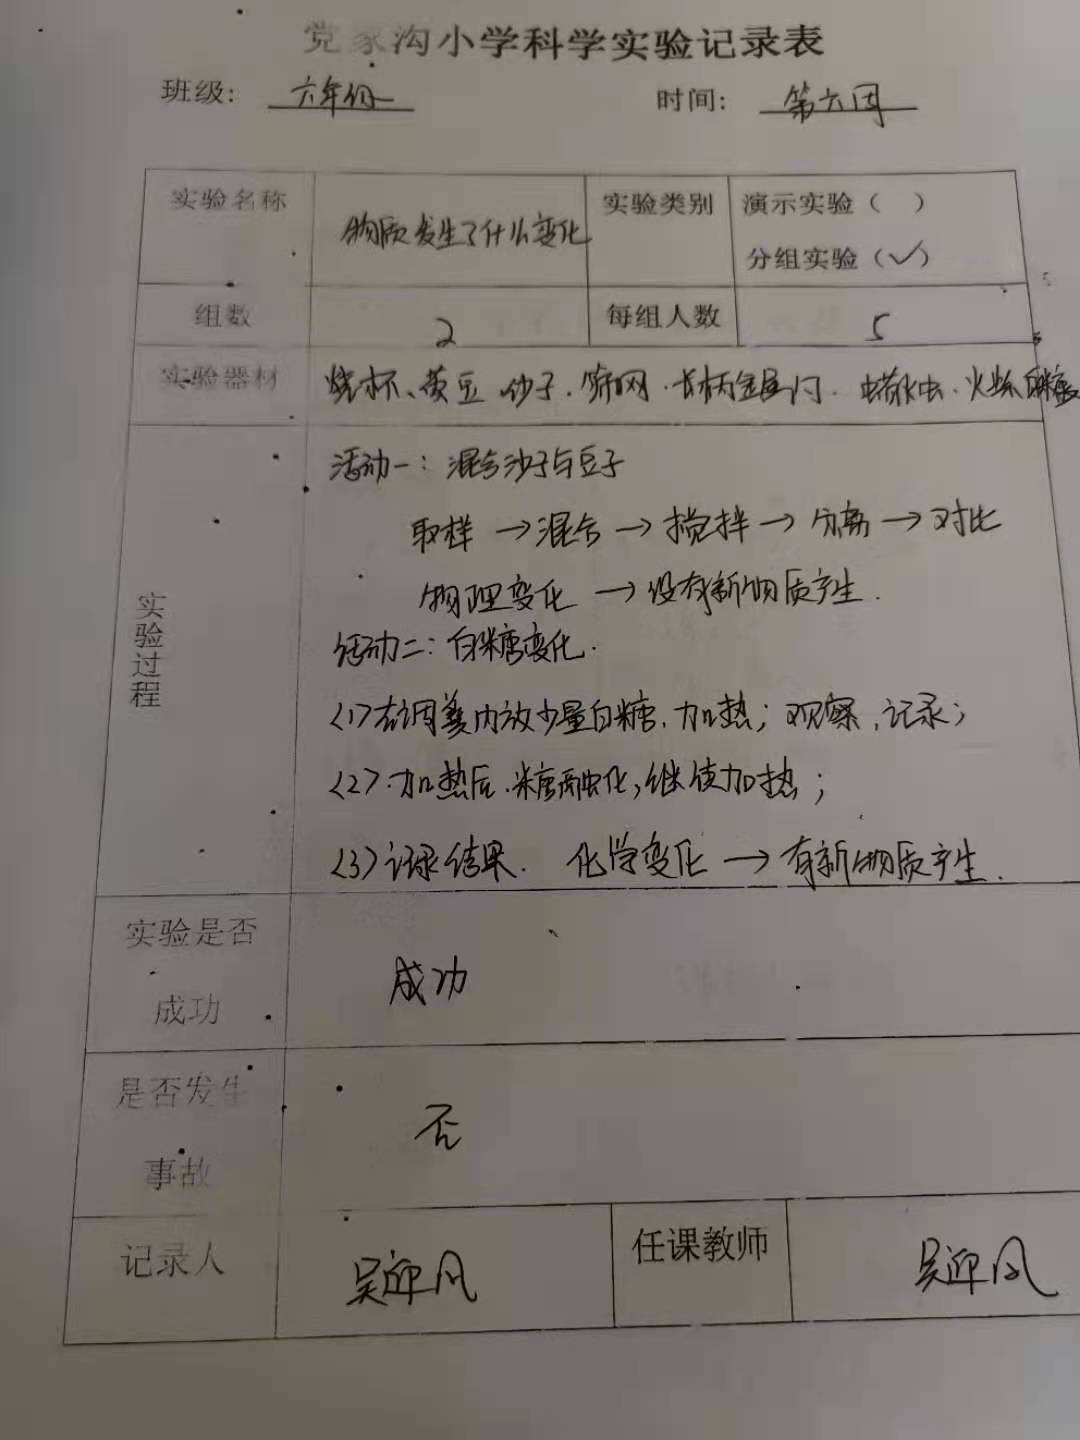 党家沟小学科学实验记录表
班级: 六年级 时间: 第六周
实验名称 物质发生了什么变化 实验类别 演示实验( )
分组实验(✓)
组数 2 每组人数 5
实验器材 烧杯、黄豆 沙子、筛网、长柄金属 蜡烛、火柴 白糖
实验过程
活动一:混合沙子与豆子
取样→混合→搅拌→分离→对比
物理变化→没有新物质产生.
活动二:白糖变化.
(1)在调羹内放少量白糖,加热;观察,记录;
(2)加热后,糖融化,继续加热;
(3)记录结果. 化学变化→有新物质产生.
实验是否成功 成功
是否发生事故 否
记录人 吴迎风 任课教师 吴迎风